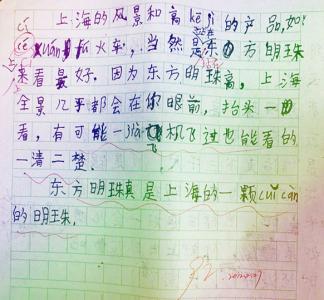 上海的风景和高kē jì的产品,如:
cí xuán fú火车,当然是东方明珠
来看最好。因为东方明珠高,上海
全景几乎都会在你眼前,抬头一
看,有可能一架飞机飞过也能看的
一清二楚。
东方明珠真是上海的一颗cuǐ càn
的明珠.